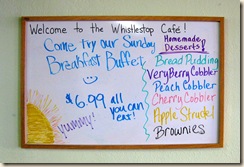 Welcome to the Whistlestop Café!
Come try our Sunday
Breakfast Buffet
$6.99 all
you can
eat!
yummy!
Homemade
Desserts!
Bread Pudding
Very Berry Cobbler
Peach Cobbler
Cherry Cobbler
Apple Strudel
Brownies